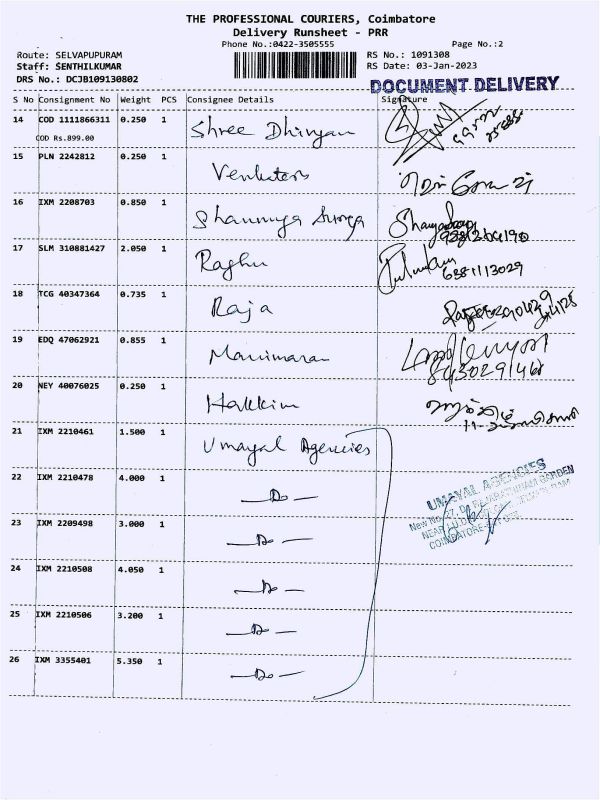 THE PROFESSIONAL COURIERS, Coimbatore
Delivery Runsheet - PRR
Phone No.:0422-3505555 Page No.:2
Route: SELVAPUPURAM RS No.: 1091308
Staff: SENTHILKUMAR RS Date: 03-Jan-2023
DRS No.: DCJB109130802
DOCUMENT DELIVERY
S No Consignment No Weight PCS Consignee Details Signature
14 COD 1111866311 0.250 1 Shree Dhivyan
COD Rs.899.00
15 PLN 2242812 0.250 1
16 IXM 2208703 0.850 1 Shanmuga Surya
17 SLM 310881427 2.050 1 Raghu
6381113029
18 TCG 40347364 0.735 1 Raja
19 EDQ 47062921 0.855 1 Manimaran
20 NEY 40076025 0.250 1 Hakkim
21 IXM 2210461 1.500 1 Umayal Agencies
22 IXM 2210478 4.000 1 —Do—
23 IXM 2209498 3.000 1 —Do—
24 IXM 2210508 4.050 1 —Do—
25 IXM 2210506 3.200 1 —Do—
26 IXM 3355401 5.350 1 —Do—
UMAYAL AGENCIES
New No. 27,
NEAR
COIMBATORE